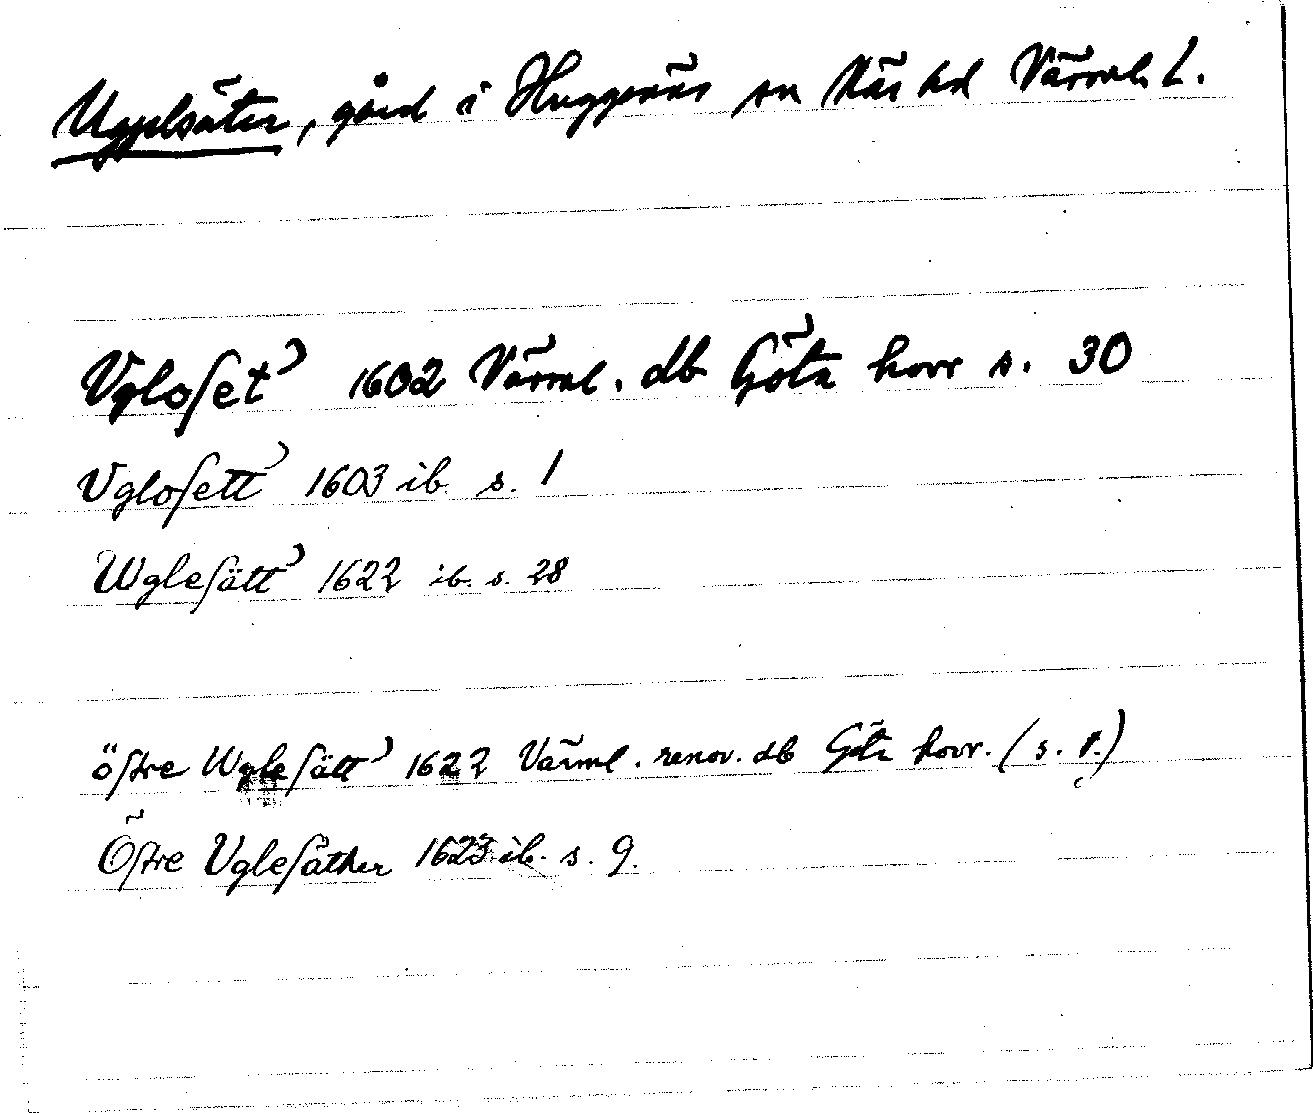 Ugglsäter, gård i Huggenäs sn Näs hd Värml. L.
Vgloſet 1602 Värml. db Göta hovr s. 30
Vgloſett 1603 ib. s. 1
Wgleſätt 1622 ib. s. 28
öſtre Wgleſätt 1622 Värml. renov. db Göta hovr. (s. )
Öſtre Vgleſäther 1623 ib. s. 9.